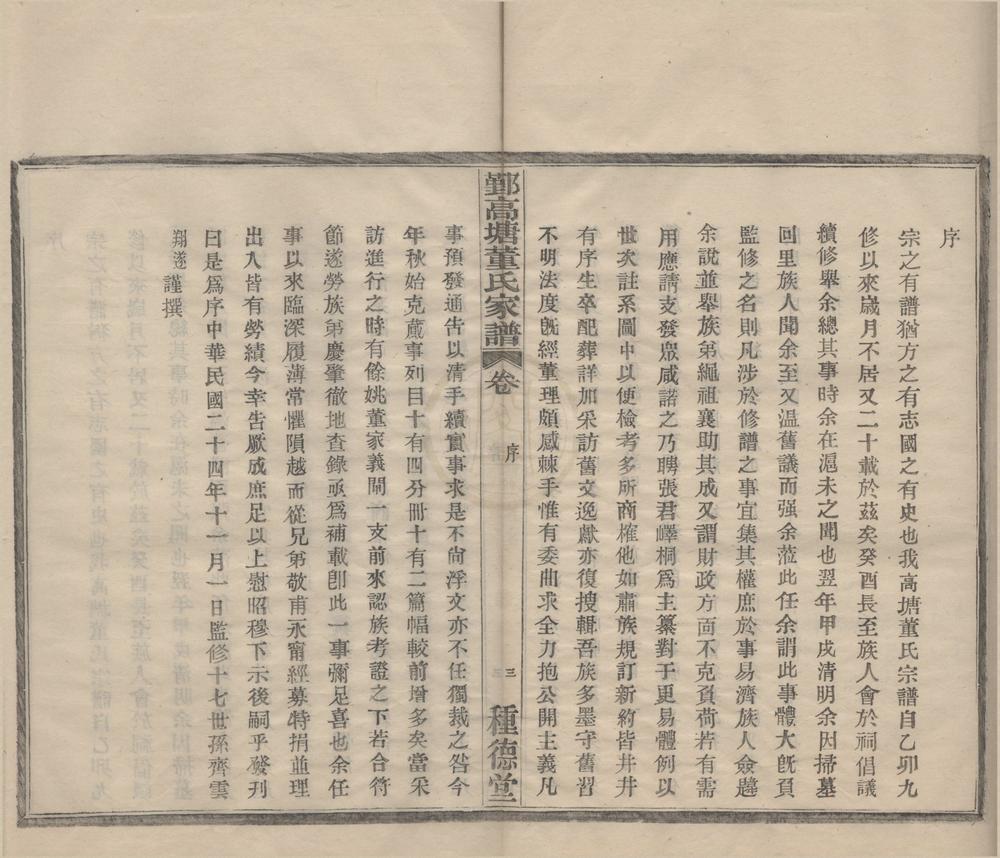 序
宗之有譜猶方之有志國之有史也我高塘董氏宗譜自乙卯九
修以來歲月不居又二十載於茲矣癸酉長至族人會於祠倡議
續修舉余總其事時余在滬未之聞也翌年甲戌清明余因掃墓
回里族人聞余至又溫舊議而强余蒞此任余謂此事體大旣頁
監修之名則凡涉於修譜之事宜集其權庶於事易濟族人僉韙
余說並舉族弟繩祖襄助其成又謂財政方面不克負荷若有需
用應請支發眾咸諾之乃聘張君嶧桐爲主纂對于更易體例以
世次註系圖中以便檢考多所商榷他如肅族規訂新約皆井井
有序生卒配葬詳加采訪舊文逸獻亦復搜輯吾族多墨守舊習
不明法度旣經董理頗感棘手惟有委曲求全力抱公開主義凡
鄞高塘董氏家譜
卷
序
三
種德堂
事預發通告以清手續實事求是不尙浮文亦不任獨裁之咎今
年秋始克蕆事列目十有四分冊十有二篇幅較前增多矣當采
訪進行之時有餘姚董家義閘一支前來認族考證之下若合符
節遂勞族弟慶肇徹地查錄亟爲補載卽此一事彌足喜也余任
事以來臨深履薄常懼隕越而從兄弟敬甫永甯經募特捐並理
出入皆有勞績今幸告厥成庶足以上慰昭穆下示後嗣乎發刊
曰是爲序中華民國二十四年十一月一日監修十七世孫齊雲
翔遂謹撰